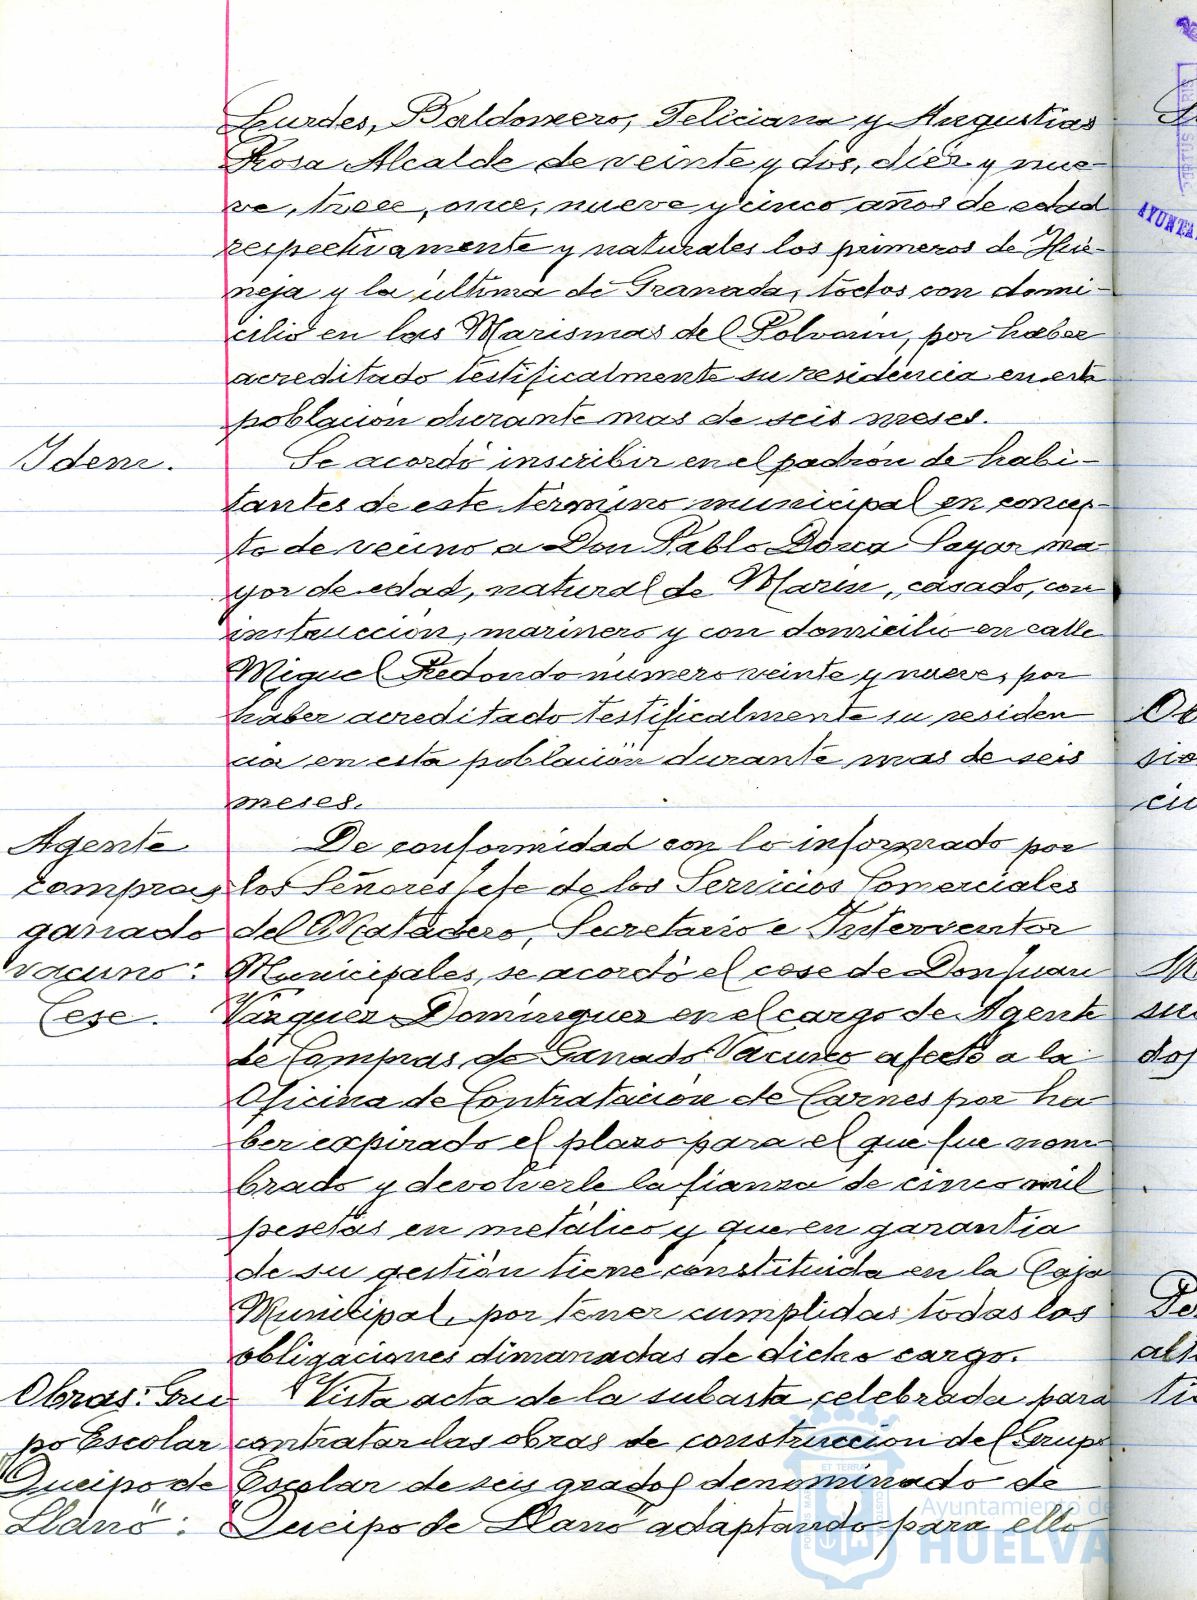 Lurdes, Baldomero, Feliciana y Angustias
Rosa Alcalde de veinte y dos, diez y nue-
ve, trece, once, nueve y cinco años de edad
respectivamente y naturales los primeros de Hué-
neja y la última de Granada, todos con domi-
cilio en las Marismas del Polvorín, por haber
acreditado testificalmente su residencia en esta
población durante mas de seis meses.
Idem.
Se acordó inscribir en el padrón de habi-
tantes de este término municipal en concep-
to de vecino a Don Pablo Dorca Sayar ma-
yor de edad, natural de Marín, casado, con
instrucción, marinero y con domicilio en calle
Miguel Redondo número veinte y nueve, por
haber acreditado testificalmente su residen
cia en esta población durante mas de seis
meses.
Agente
compras
ganado
vacuno:
Cese.
De conformidad con lo informado por
los Señores Jefe de los Servicios Comerciales
del Matadero, Secretario e Interventor
Municipales, se acordó el cese de Don Juan
Vázquez Domínguez en el cargo de Agente
de Compras de Ganado Vacuno afecto a la
Oficina de Contratación de Carnes por ha
ber expirado el plazo para el que fue nom
brado y devolverle la fianza de cinco mil
pesetas en metálico y que en garantía
de su gestión tiene constituida en la Caja
Municipal, por tener cumplidas todas las
obligaciones dimanadas de dicho cargo.
Obras: Gru
po Escolar
"Queipo de
Llano":
Vista acta de la subasta celebrada para
contratar las obras de construcción del Grupo
Escolar de seis grados denominado de
"Queipo de Llano" adaptando para ello
Ayuntamiento de
HUELVA